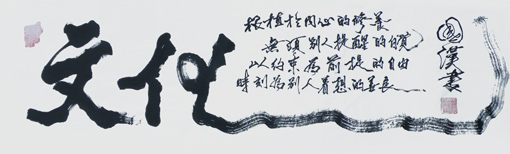 文化
根植於內心的修養
無須別人提醒的自覺
以約束為前提的自由
時刻為別人着想的善良
國漢書